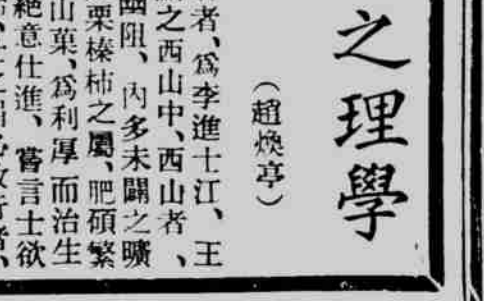 之理學
（趙煥亭）
者、爲李進士江、王
之西山中、西山者、
幽阻、內多未闢之曠
栗榛柿之屬、肥碩繁
山菓、爲利厚而治生
絕意仕進、嘗言士欲